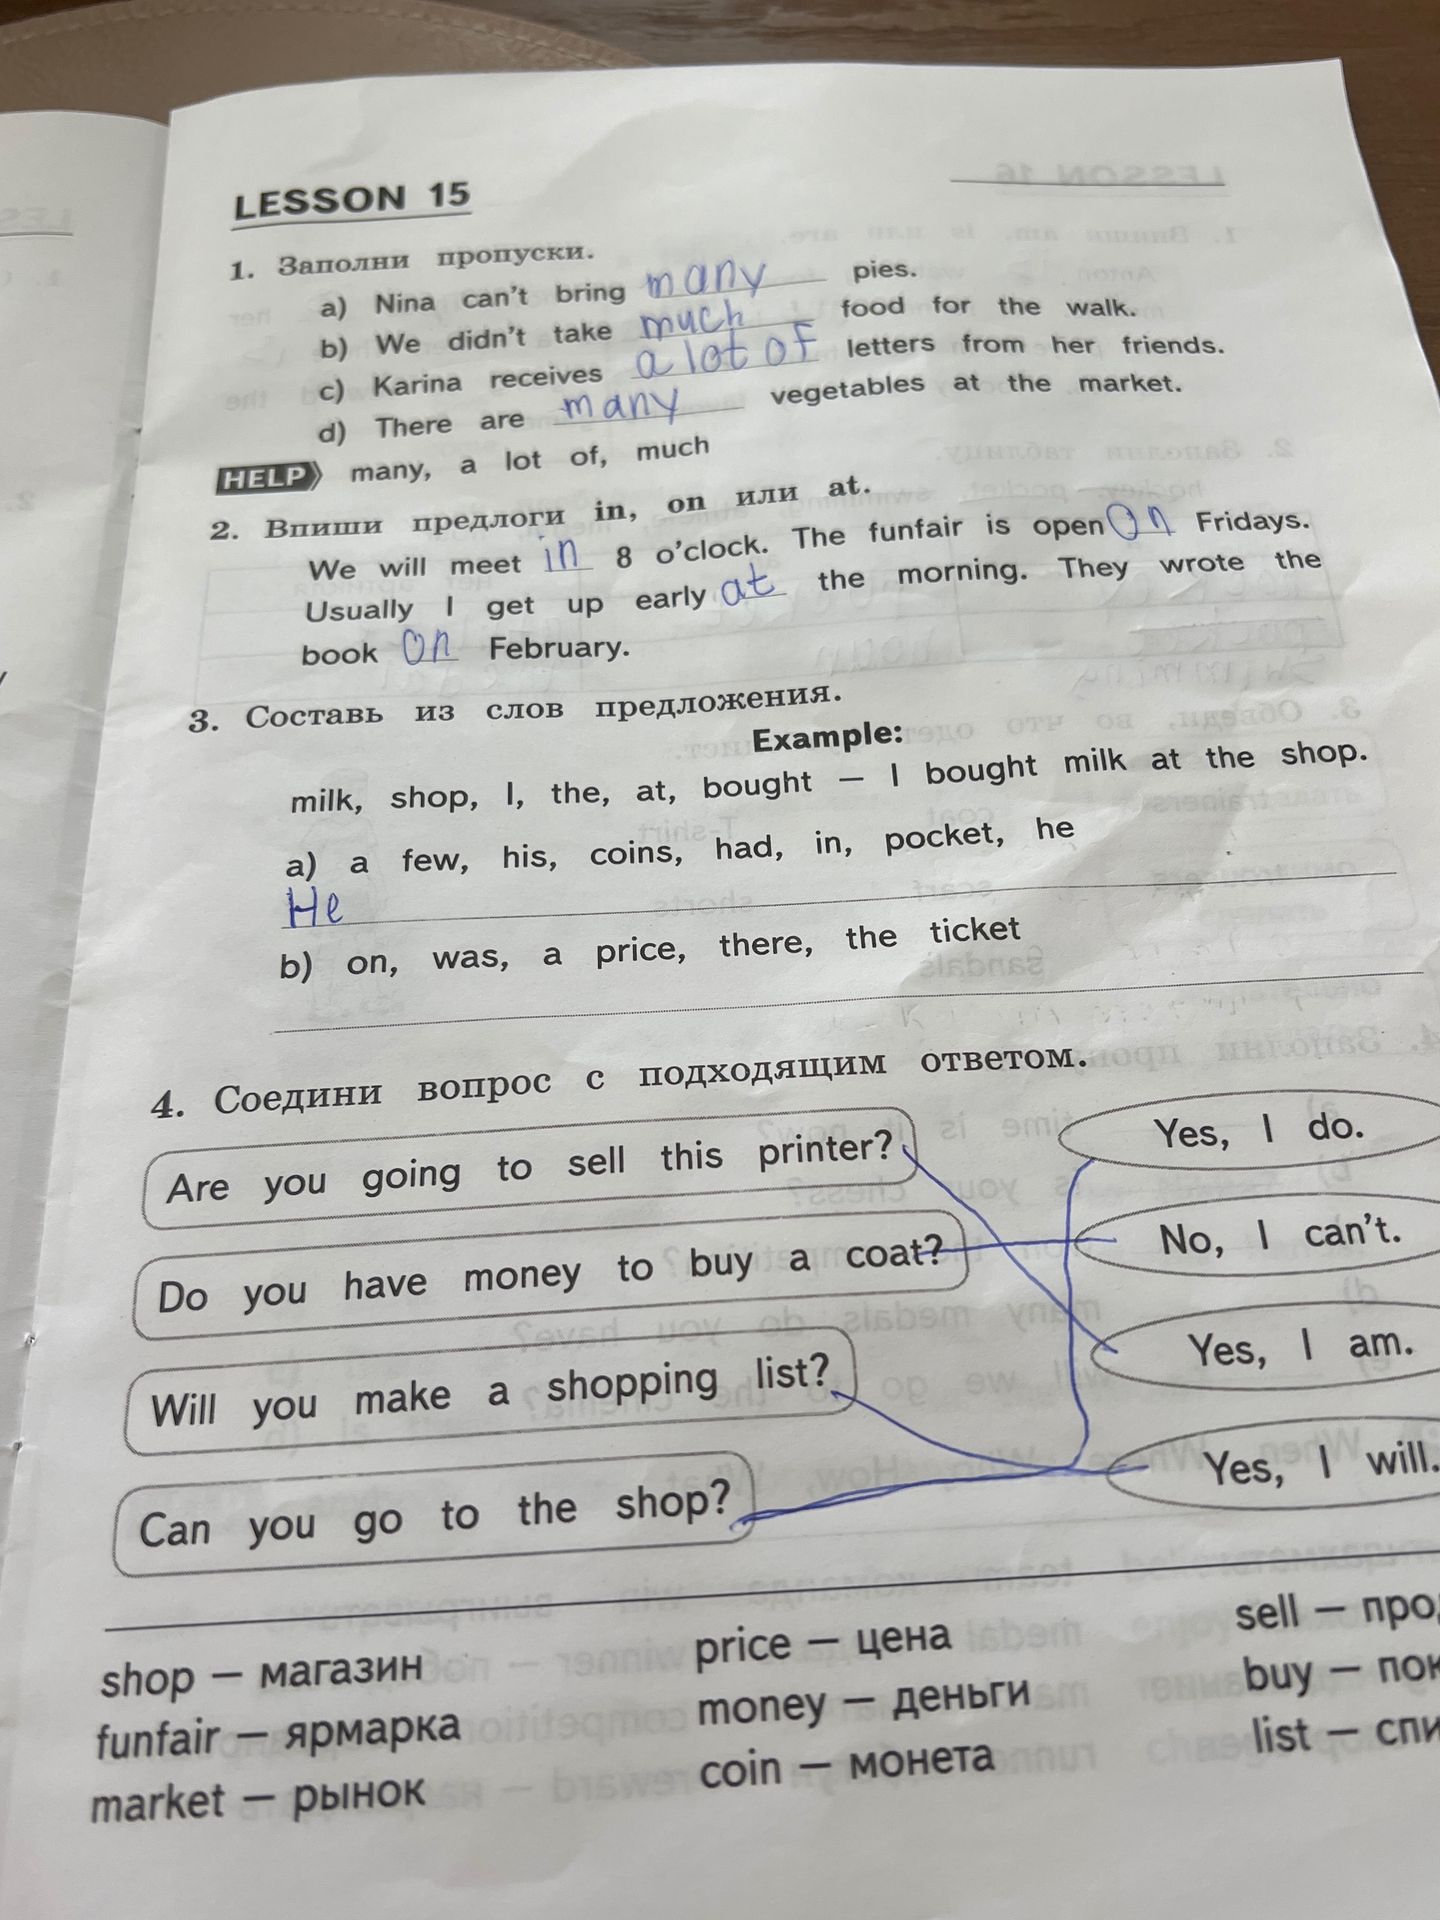 LESSON 15
1. Заполни пропуски.
a) Nina can't bring many pies.
b) We didn't take much food for the walk.
c) Karina receives a lot of letters from her friends.
d) There are many vegetables at the market.
HELP many, a lot of, much
2. Впиши предлоги in, on или at.
We will meet in 8 o'clock. The funfair is open On Fridays.
Usually I get up early at the morning. They wrote the
book On February.
3. Составь из слов предложения.
Example:
milk, shop, I, the, at, bought — I bought milk at the shop.
a) a few, his, coins, had, in, pocket, he
He
b) on, was, a price, there, the ticket
4. Соедини вопрос с подходящим ответом.
Are you going to sell this printer? Yes, I do.
Do you have money to buy a coat? No, I can't.
Will you make a shopping list? Yes, I am.
Can you go to the shop? Yes, I will.
shop — магазин price — цена sell — про
funfair — ярмарка money — деньги buy — пок
market — рынок coin — монета list — спи